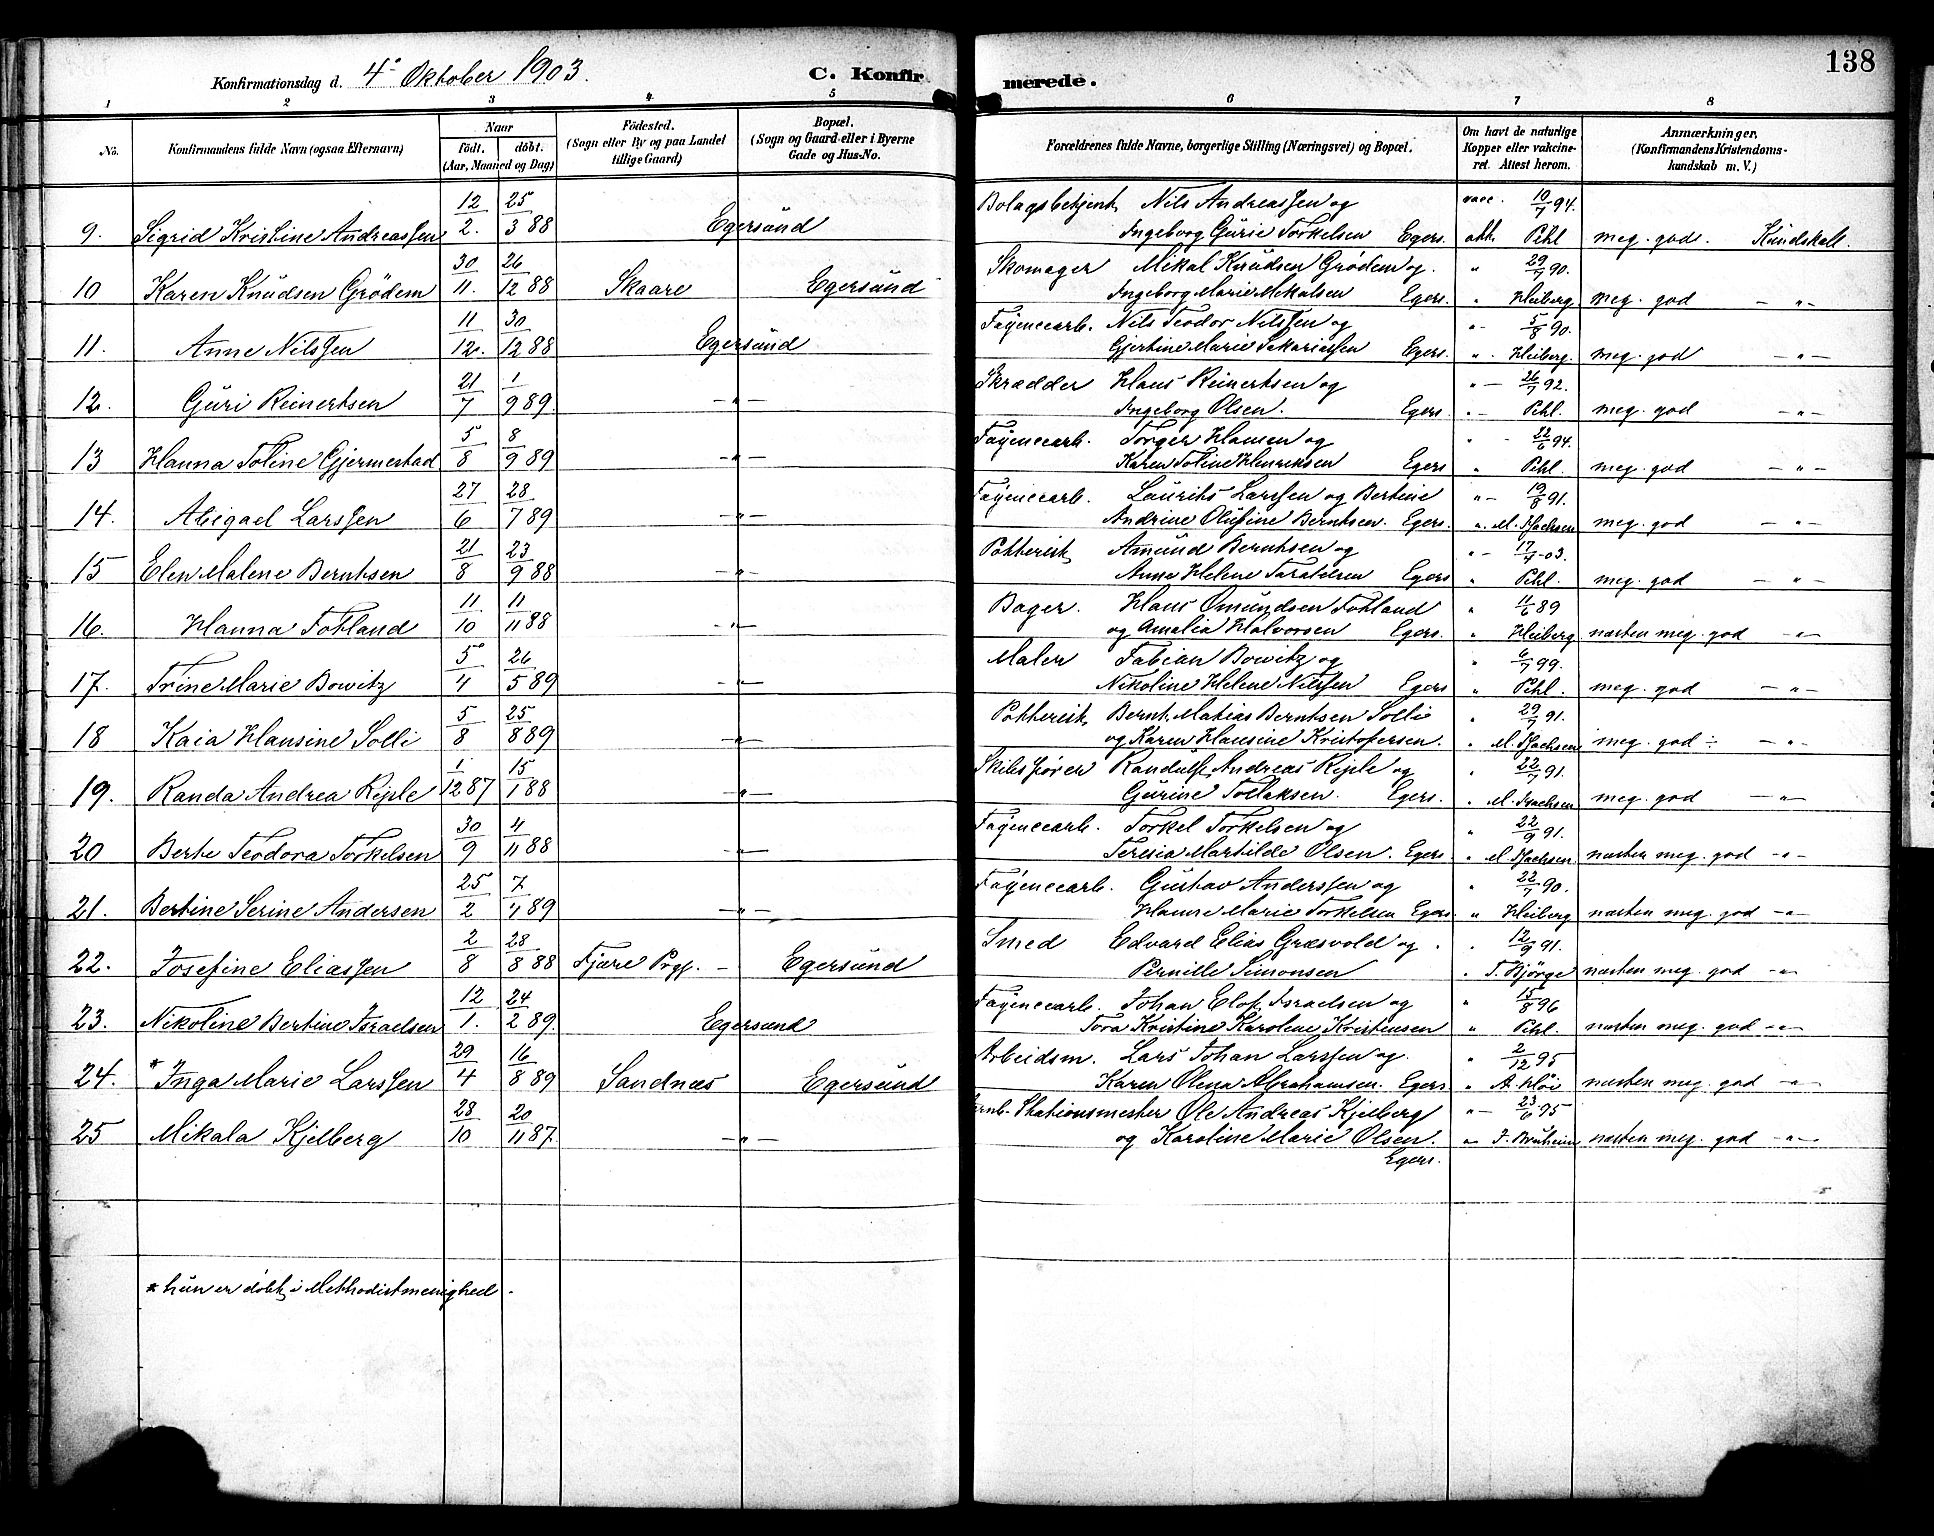 138
Konfirmationsdag d. 4de Oktober 1903. C. Konfirmerede.
1 2 3 4 5 6 7 8
No. Konfirmandens fulde Navn (ogsaa Efternavn) Naar født. døbt. (Aar, Maaned og Dag) Fødested. (Sogn eller By og paa Landet tillige Gaard) Bopæl. (Sogn og Gaard eller i Byerne Gade og Hus-No. Forældrenes fulde Navne, borgerlige Stilling (Næringsvei) og Bopæl. Om havt de naturlige Kopper eller vakcineret. Attest herom. Anmærkninger, (Konfirmandens Kristendomskundskab m. V.)
12 25 Bolagsbetjent Nils Andreassen og vacc. 10/7 94.
9. Sigrid Kristine Andreassen 2. 3 88 Egersund Ingeborg Gurie Torkelsen Egers. att. Pihl meg. god. Kundskab.
30 26 Skomager Mikal Knudsen Grødem og " 29/7 90.
10 Karen Knudsen Grödem 11. 12 88 Skaare Egersund Ingeborg Marie Mikalsen Egers. " Heiberg meg. god — " —
11 30 Fayencearb. Nils Teodor Nilssen og " 5/8 90.
11. Anne Nilssen 12. 12 88 Egersund Gjertine Marie Sakariassen Egers. " Heiberg. meg. god — " —
21 1 Skrædder Hans Reinertsen og " — 26/7 92.
12. Guri Reinertsen 7 9 89 — " — Ingeborg Olsen. Egers. " — Pihl. meg. god — " —
5 8 Fayencearb. Torger Hansen og " 22/6 94.
13 Hanna Toline Gjermestad 8 9 89 — " — Karen Toline Henriksen Egers " Pihl. meg. god — " —
27 28 Fayencearb. Laurits Larssen og Bertine " — 19/8 91.
14. Abigael Larssen 6 7 89 — " — Andrine Olufine Berntsen. Egers. " M. Isachsen meg. god — " —
21 23 Potterisk Amund Berntsen og " — 17/4 03.
15 Elen Malene Berntsen 8 9 88 — " — Anne Helene Egers " Pihl. meg. god — " —
11 11 Bager. Hans Omundsen Fotland " 11/6 89
16. Hanna Fotland 10 11 88 — " — og Amalia Halvorsen Egers. " Heiberg næsten meg. god — " —
5 26 Maler Fabian Bowitz og " 6/7 99.
17. Trine Marie Bowitz 4 5 89 — " — Nikoline Helene Nilssen Egers " Pihl. meg. god — " —
5 25 Potterisk Bernt Matias Berntsen Solli " 29/7 91.
18 Kaia Hansine Solli 8 8 89 — " — og Karen Hansine Kristofersen. " M. Isachsen meg. god — " —
1 15 Skibsfører Randulf Andreas Riple og " 22/7 91.
19. Randa Andrea Riple 12 87 1 88 — " — Gurine Tollaksen. Egers. " M. Isachsen meg. god — " —
30 4 Fayencearb. Torkel Torkelsen og " 22/9 91.
20 Berte Teodora Torkelsen 9 11 88 — " — Teresia Martilde Olsen. Egers " M. Isachsen næsten meg. god — " —
25 7 Fayencearb. Gustav Anderssen og " 22/7 90.
21. Bertine Serine Andersen 2 4 89 — " — Hanne Marie Torkelsen Egers " Heiberg næsten meg. god — " —
2 28 Smed Edvard Elias Græsvold og " 12/9 91.
22. Josefine Eliassen 8 8 88 Fjære Prgj. — Egersund Pernille Simonsen " T. Bjørge næsten meg. god — " —
12 24 Fayencearb. Johan Elof Israelsen og " 15/8 96
23. Nikoline Bertine Israelsen 1. 2 89. Egersund Tora Kristine Karolene Kristensen " Pihl. næsten meg. god — " —
29 16 Arbeidsm. Lars Johan Larssen og " 2/12 95
24. * Inga Marie Larssen 4 8 89 Sandnæs Egersund Karen Olena Abrahamsen. Egers " næsten meg. god — " —
28 20 Stationsmester Ole Andreas Kjelberg " — 23/6 95
25 Mikala Kjelberg 10 11 87. — " — og Karoline Marie Olsen. " J. Bruheim næsten meg. god — " —
Egers.
* hun er døbt i Methodistmenighed.